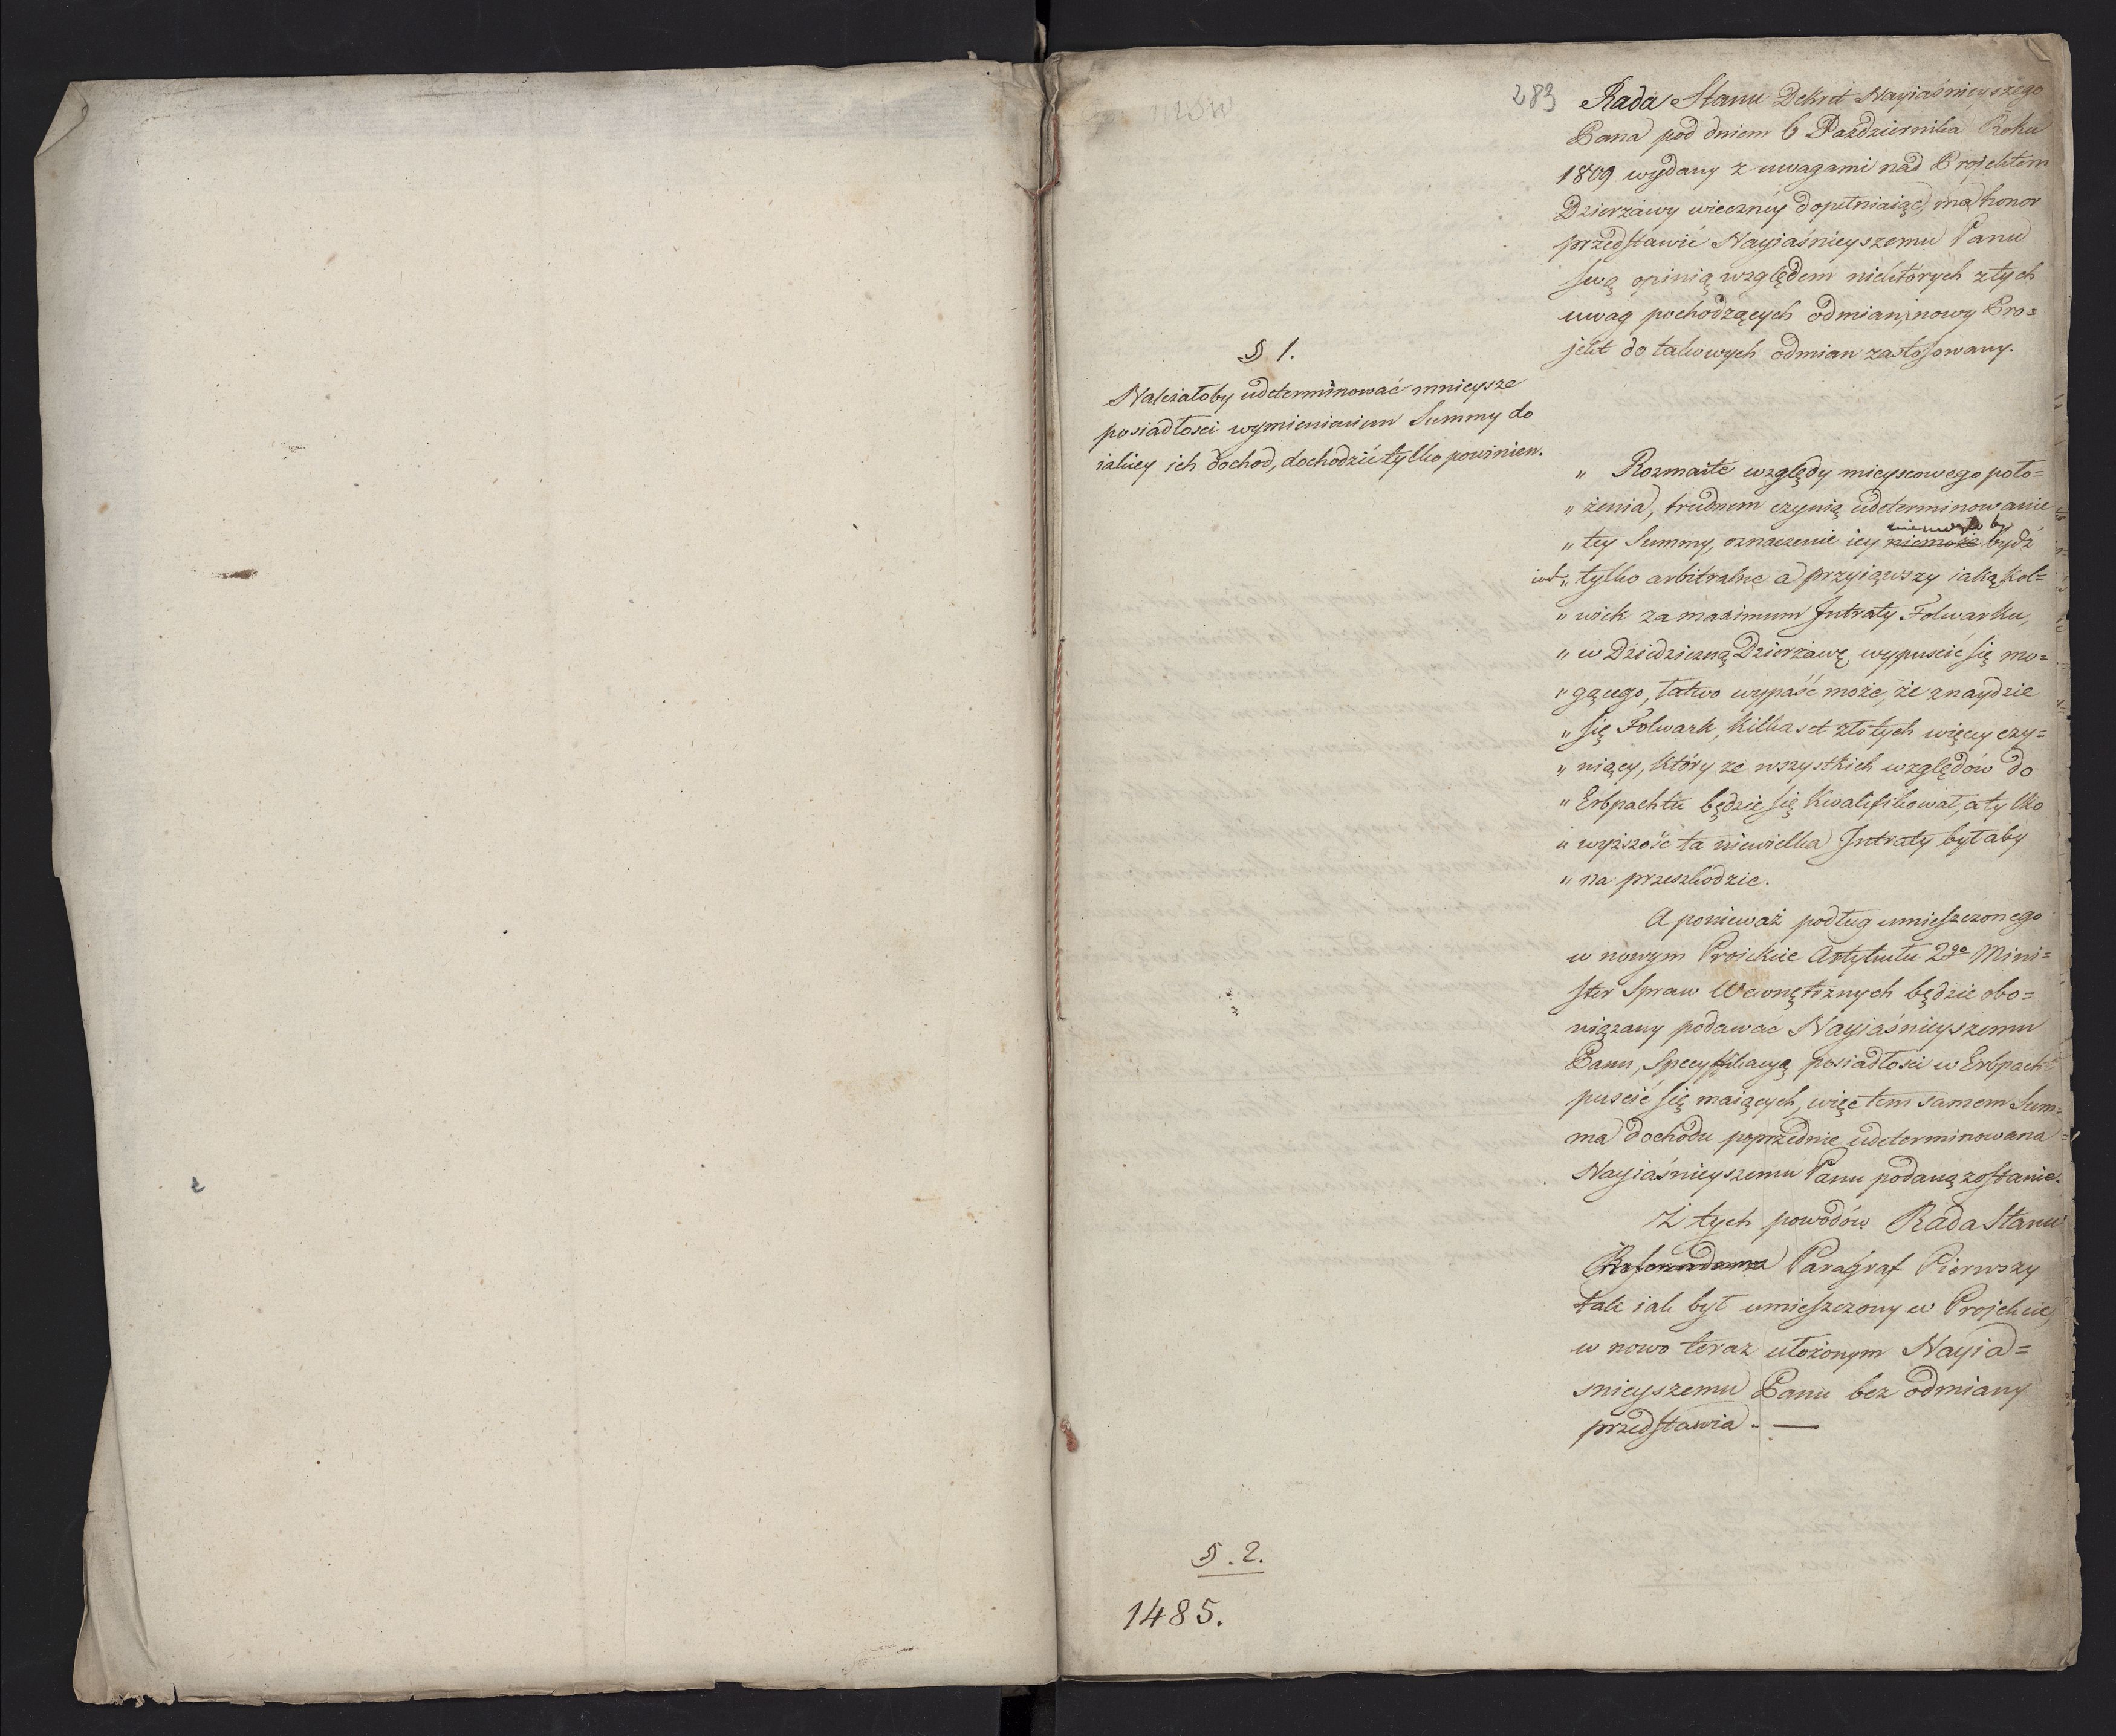 283
Rada Stanu Dekret Nayiaśnieyszego
Pana pod dniem 6 Pazdziernika Roku
1809 wydany z uwagami nad Projektem
Dzierżawy wieczney dopełniaiąc, ma honor
przedstawić Nayiaśnieyszemu Panu
swą opinią względem niektórych z tych
uwag pochodzących odmian, i nowy Pro=
jekt do takowych odmian zastosowany.
§ 1.
Należałoby udeterminować mnieysze
posiadłosci wymienieniem Summy do
iakiey ich dochod, dochodzić tylko powinien.
„ Rozmaite względy mieyscowego poło=
„ żenia, trudnem czynią udeterminowanie
„ tey Summy, oznaczenie iey niemoże niemogło by bydź
iak „ tylko arbitralne a przyiąwszy iaką kol=
„ wiek za maximum Intraty Folwarku,
„ w Dziedziczną Dzierżawę wypuscić się mo=
„ gącego, łatwo wypaść może, że znaydzie
„ się Folwark, kilka set złotych więcey czy=
„ niący, który ze wszystkich względów do
„ Erbpachtu będzie się kwalifikował, a tylko
„ wyższość ta niewielka Intraty byłaby
„ na przeszkodzie.
A ponieważ podług umieszczonego
w nowym Proiekcie Artykułu 2go Mini=
ster Spraw Wewnętrznych będzie obo=
wiązany podawać Nayiaśnieyszemu
Panu, Specyfikacyą posiadłosci w Erbpacht
puscić się maiących, więc tem samem Sum=
ma dochodu poprzednie udeterminowana
Nayiaśnieyszemu Panu podaną zostanie.
Z tych powodów Rada Stanu
Paragraf Pierwszy
tak iak był umieszczony w Projekcie,
w nowo teraz ułożonym Nayia=
snieyszemu Panu bez odmiany
przedstawia. —
§. 2.
1485.